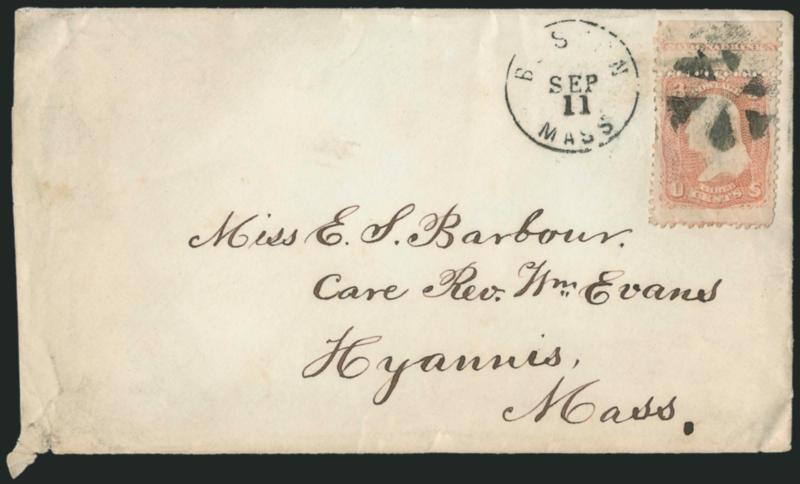 BOSTON
SEP
11
MASS
U 3 S
CENTS
Miss E. S. Barbour.
Care Rev. Wm. Evans
Hyannis,
Mass.